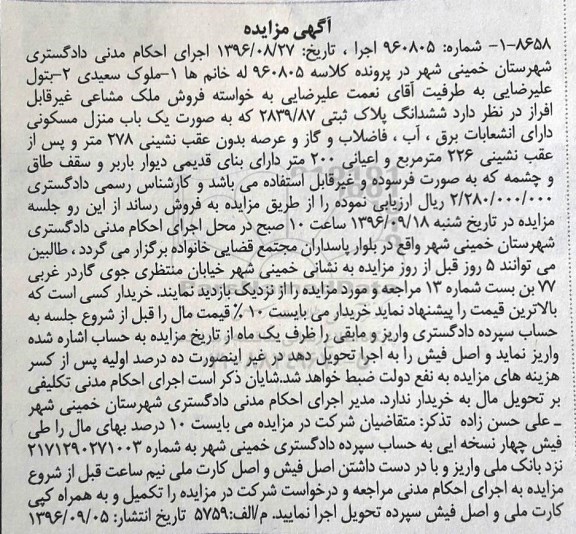 آگهی مزایده
۸۶۵۸-۱- شماره: ۹۶۰۸۰۵ اجرا ، تاریخ: ۱۳۹۶/۰۸/۲۷ اجرای احکام مدنی دادگستری
شهرستان خمینی شهر در پرونده کلاسه ۹۶۰۸۰۵ له خانم ها ۱-ملوک سعیدی ۲-بتول
علیرضایی به طرفیت آقای نعمت علیرضایی به خواسته فروش ملک مشاعی غیرقابل
افراز در نظر دارد ششدانگ پلاک ثبتی ۲۸۳۹/۸۷ که به صورت یک باب منزل مسکونی
دارای انشعابات برق ، آب ، فاضلاب و گاز و عرصه بدون عقب نشینی ۲۷۸ متر و پس از
عقب نشینی ۲۲۶ مترمربع و اعیانی ۲۰۰ متر دارای بنای قدیمی دیوار باربر و سقف طاق
و چشمه که به صورت فرسوده و غیرقابل استفاده می باشد و کارشناس رسمی دادگستری
۲/۲۸۰/۰۰۰/۰۰۰ ریال ارزیابی نموده را از طریق مزایده به فروش رساند از این رو جلسه
مزایده در تاریخ شنبه ۱۳۹۶/۰۹/۱۸ ساعت ۱۰ صبح در محل اجرای احکام مدنی دادگستری
شهرستان خمینی شهر واقع در بلوار پاسداران مجتمع قضایی خانواده برگزار می گردد ، طالبین
می توانند ۵ روز قبل از روز مزایده به نشانی خمینی شهر خیابان منتظری جوی گاردر غربی
۷۷ بن بست شماره ۱۳ مراجعه و مورد مزایده را از نزدیک بازدید نمایند. خریدار کسی است که
بالاترین قیمت را پیشنهاد نماید خریدار می بایست ۱۰ ٪ قیمت مال را قبل از شروع جلسه به
حساب سپرده دادگستری واریز و مابقی را ظرف یک ماه از تاریخ مزایده به حساب اشاره شده
واریز نماید و اصل فیش را به اجرا تحویل دهد در غیر اینصورت ده درصد اولیه پس از کسر
هزینه های مزایده به نفع دولت ضبط خواهد شد.شایان ذکر است اجرای احکام مدنی تکلیفی
بر تحویل مال به خریدار ندارد. مدیر اجرای احکام مدنی دادگستری شهرستان خمینی شهر
ـ علی حسن زاده تذکر: متقاضیان شرکت در مزایده می بایست ۱۰ درصد بهای مال را طی
فیش چهار نسخه ایی به حساب سپرده دادگستری خمینی شهر به شماره ۲۱۷۱۲۹۰۲۷۱۰۰۳
نزد بانک ملی واریز و با در دست داشتن اصل فیش و اصل کارت ملی نیم ساعت قبل از شروع
مزایده به اجرای احکام مدنی مراجعه و درخواست شرکت در مزایده را تکمیل و به همراه کپی
کارت ملی و اصل فیش سپرده تحویل اجرا نمایید. م/الف:۵۷۵۹ تاریخ انتشار: ۱۳۹۶/۰۹/۰۵